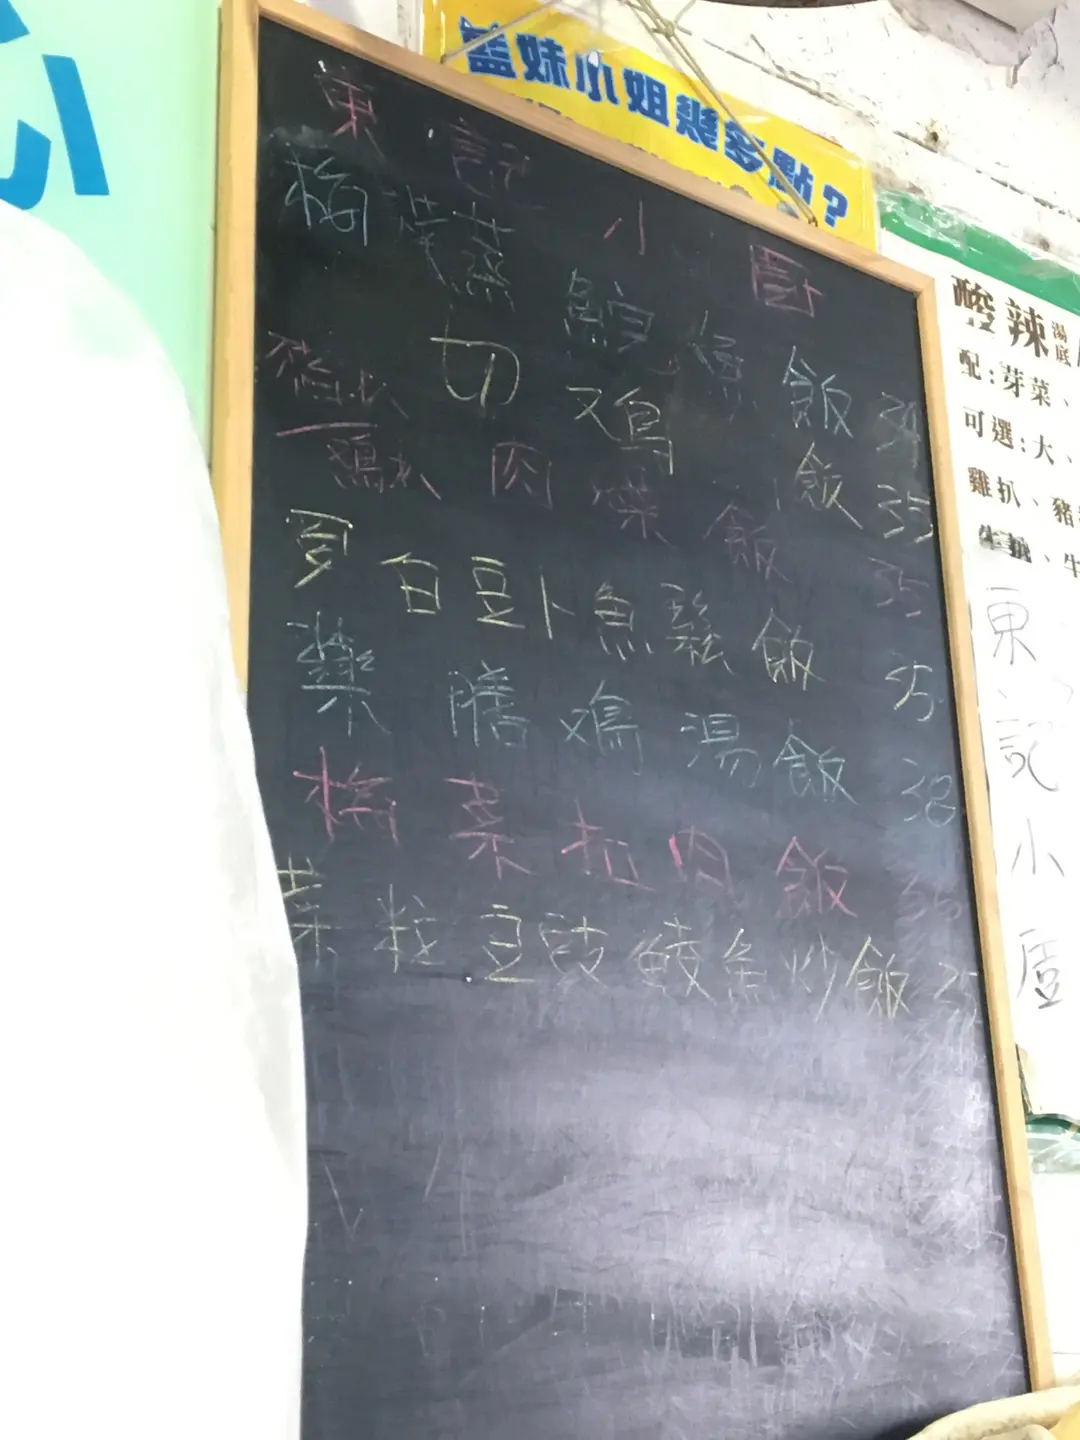 藍妹小姐幾多點?
東記小厨
梅菜蒸鯇魚飯 34
切鸡飯 35
鷄扒肉菜飯 35
白豆卜魚鬆飯 35
藥膳鸡湯飯 38
梅菜扣肉飯 36
菜粒豆豉鯪魚炒飯 35
酸辣湯底
配:芽菜、
可選:大、
雞扒、豬
牛
東記小厝